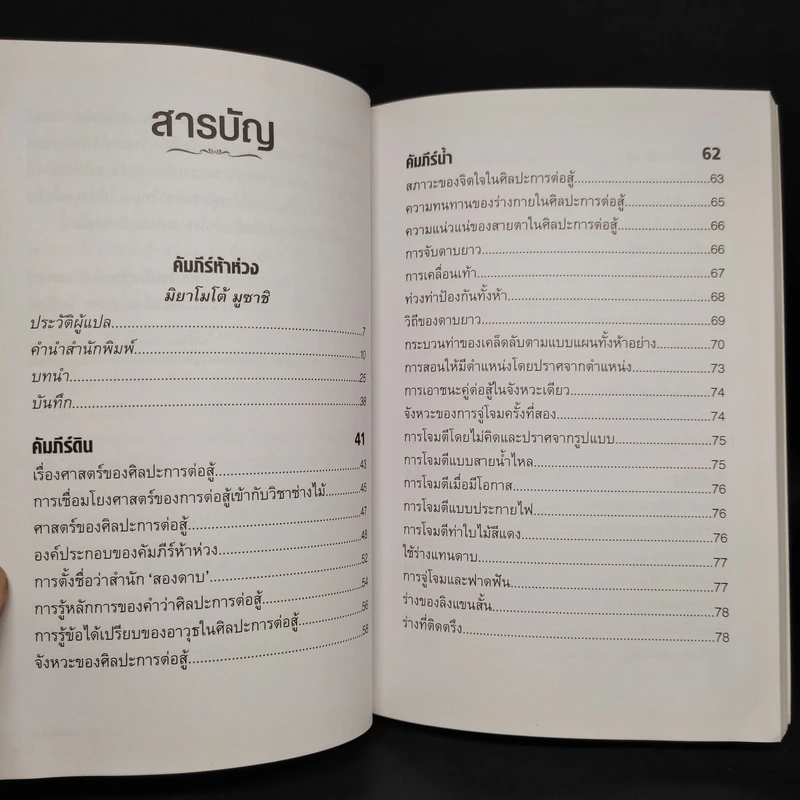 สารบัญ
คัมภีร์ห้าห่วง
มิยาโมโต้ มูซาชิ
ประวัติผู้แปล 7
คำนำสำนักพิมพ์ 10
บทนำ 25
บันทึก 38
คัมภีร์ดิน 41
เรื่องศาสตร์ของศิลปะการต่อสู้ 43
การเชื่อมโยงศาสตร์ของการต่อสู้เข้ากับวิชาช่างไม้ 45
ศาสตร์ของศิลปะการต่อสู้ 47
องค์ประกอบของคัมภีร์ห้าห่วง 48
การตั้งชื่อว่าสำนัก ‘สองดาบ’ 52
การรู้หลักการของคำว่าศิลปะการต่อสู้ 54
การรู้ข้อได้เปรียบของอาวุธในศิลปะการต่อสู้ 56
จังหวะของศิลปะการต่อสู้ 58
คัมภีร์น้ำ 62
สภาวะของจิตใจในศิลปะการต่อสู้ 63
ความทนทานของร่างกายในศิลปะการต่อสู้ 65
ความแน่วแน่ของสายตาในศิลปะการต่อสู้ 66
การจับดาบยาว 66
การเคลื่อนเท้า 67
ท่วงท่าป้องกันทั้งห้า 68
วิถีของดาบยาว 69
กระบวนท่าของเคล็ดลับตามแบบแผนทั้งห้าอย่าง 70
การสอนให้มีตำแหน่งโดยปราศจากตำแหน่ง 73
การเอาชนะคู่ต่อสู้ในจังหวะเดียว 74
จังหวะของการจู่โจมครั้งที่สอง 74
การโจมตีโดยไม่คิดและปราศจากรูปแบบ 75
การโจมตีแบบสายน้ำไหล 75
การโจมตีเมื่อมีโอกาส 76
การโจมตีแบบประกายไฟ 76
การโจมตีท่าใบไม้สีแดง 76
ใช้ร่างแทนดาบ 77
การจู่โจมและฟาดฟัน 77
ร่างของลิงแขนสั้น 78
ร่างที่ติดตรึง 78